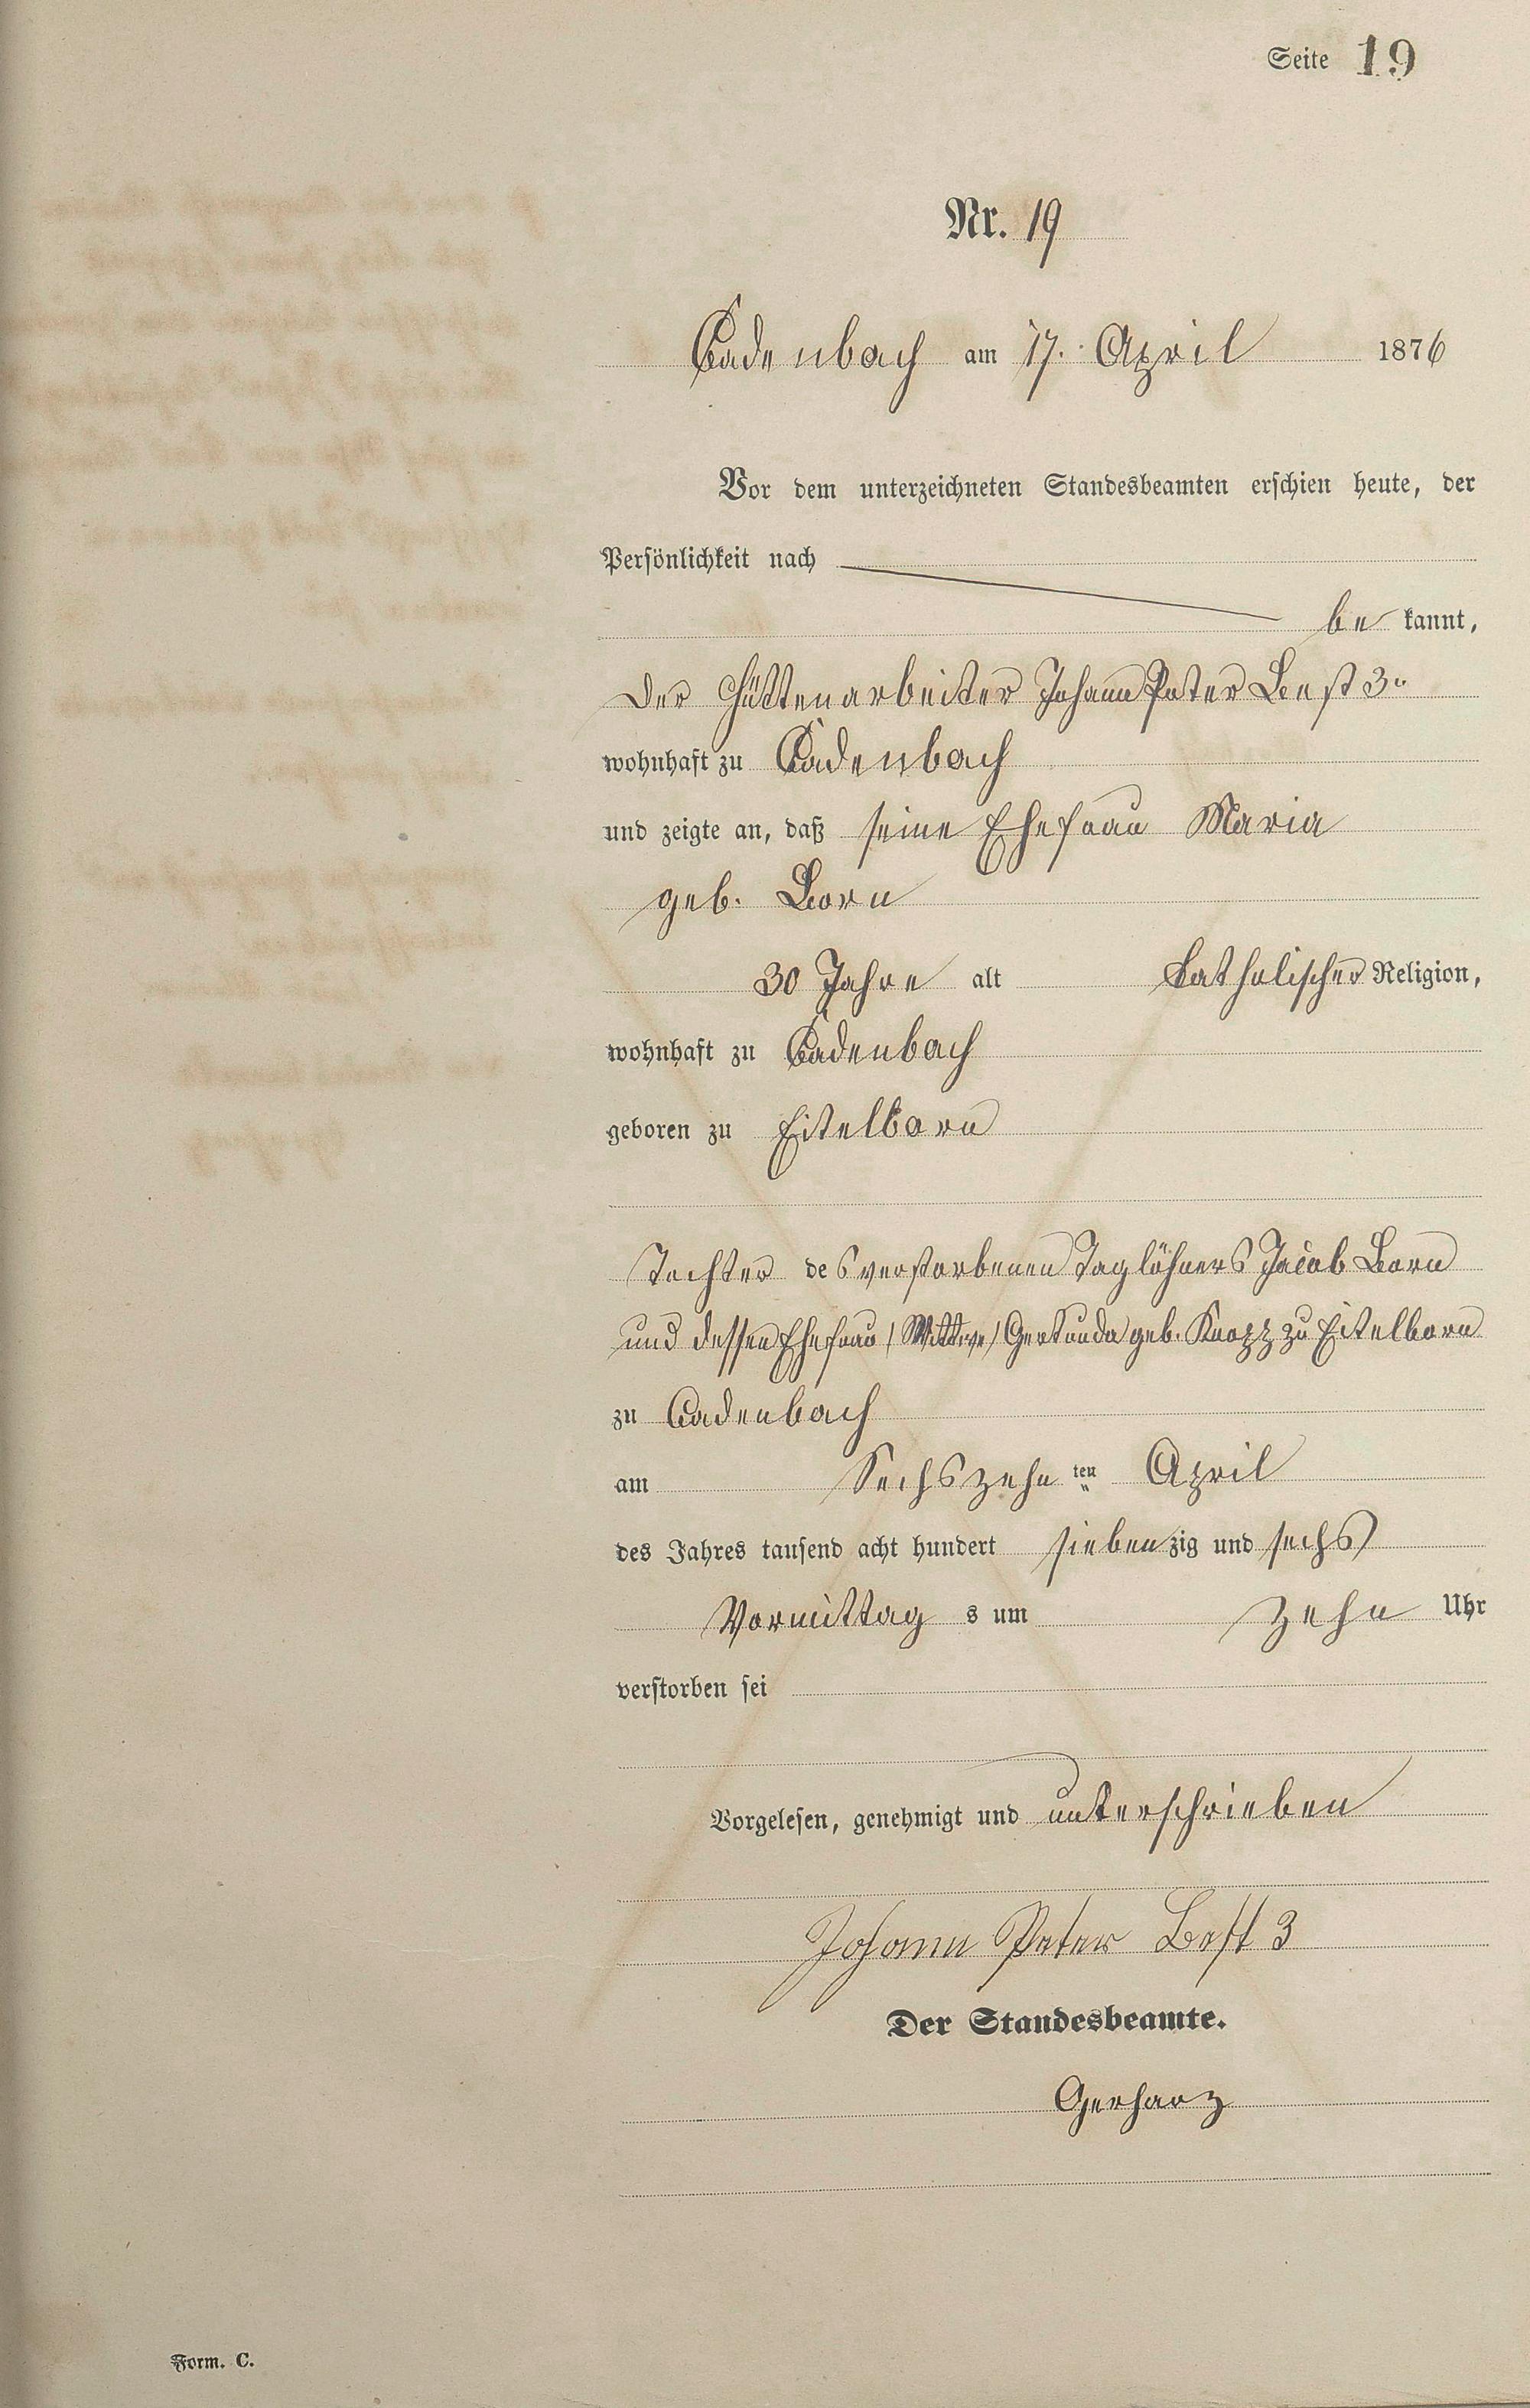 Seite 19
Nr. 19
Cadenbach am 17. April 1876
Vor dem unterzeichneten Standesbeamten erschien heute, der
Persönlichkeit nach
be kannt,
der Hüttenarbeiter Johann Peter Best 3r
wohnhaft zu Cadenbach
und zeigte an, daß seine Ehefrau Maria
geb. Born
30 Jahre alt katholischer Religion,
wohnhaft zu Cadenbach
geboren zu Eitelborn
Tochter des verstorbenen Taglöhners Jacob Born
und dessen Ehefrau / Wittwe / geb. Knopp zu Eitelborn
zu Cadenbach
am Sechszehnten April
des Jahres tausend acht hundert siebenzig und sechs
Vormittag s um zehn Uhr
verstorben sei
Vorgelesen, genehmigt und unterschrieben
Johann Peter Best 3
Der Standesbeamte.
Gerharz
Form. C.